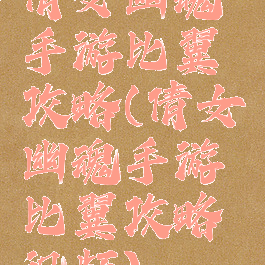 倩女幽魂
手游比翼
攻略(倩女
幽魂手游
比翼攻略
视频)